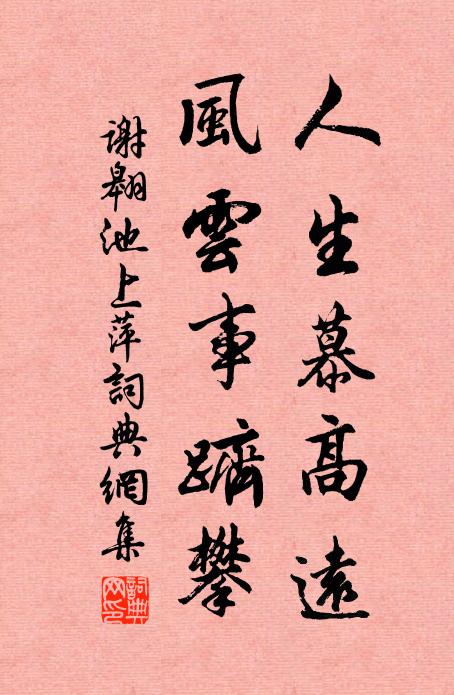 人生慕高遠
風雲事躋攀
謝翱池上萍詞典網集
詞典網印